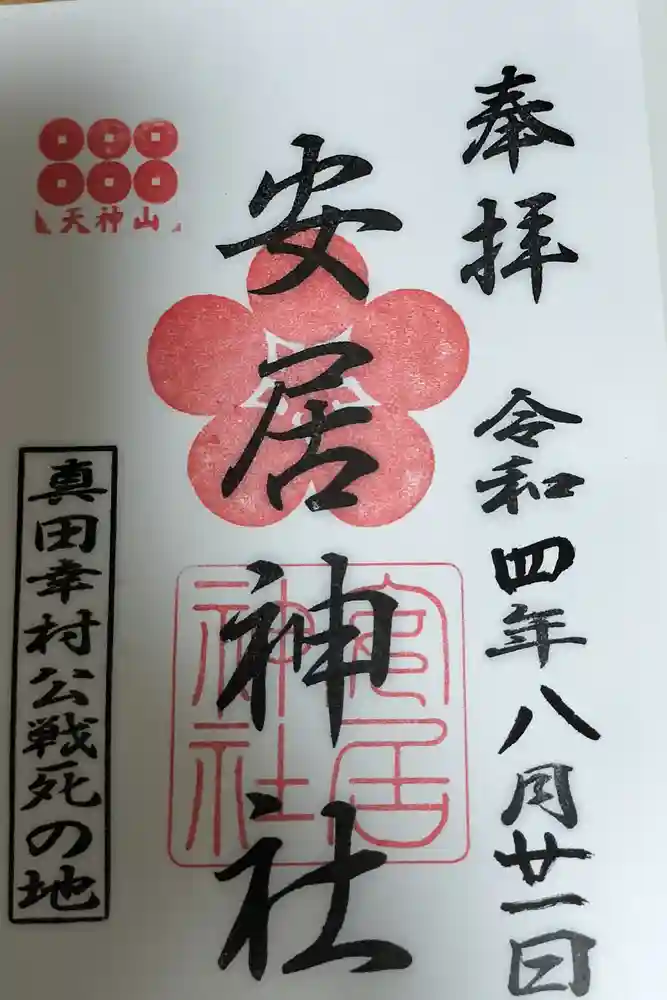 奉拝
令和四年八月廿一日
安居神社
安居
神社
天神山
真田幸村公戦死の地